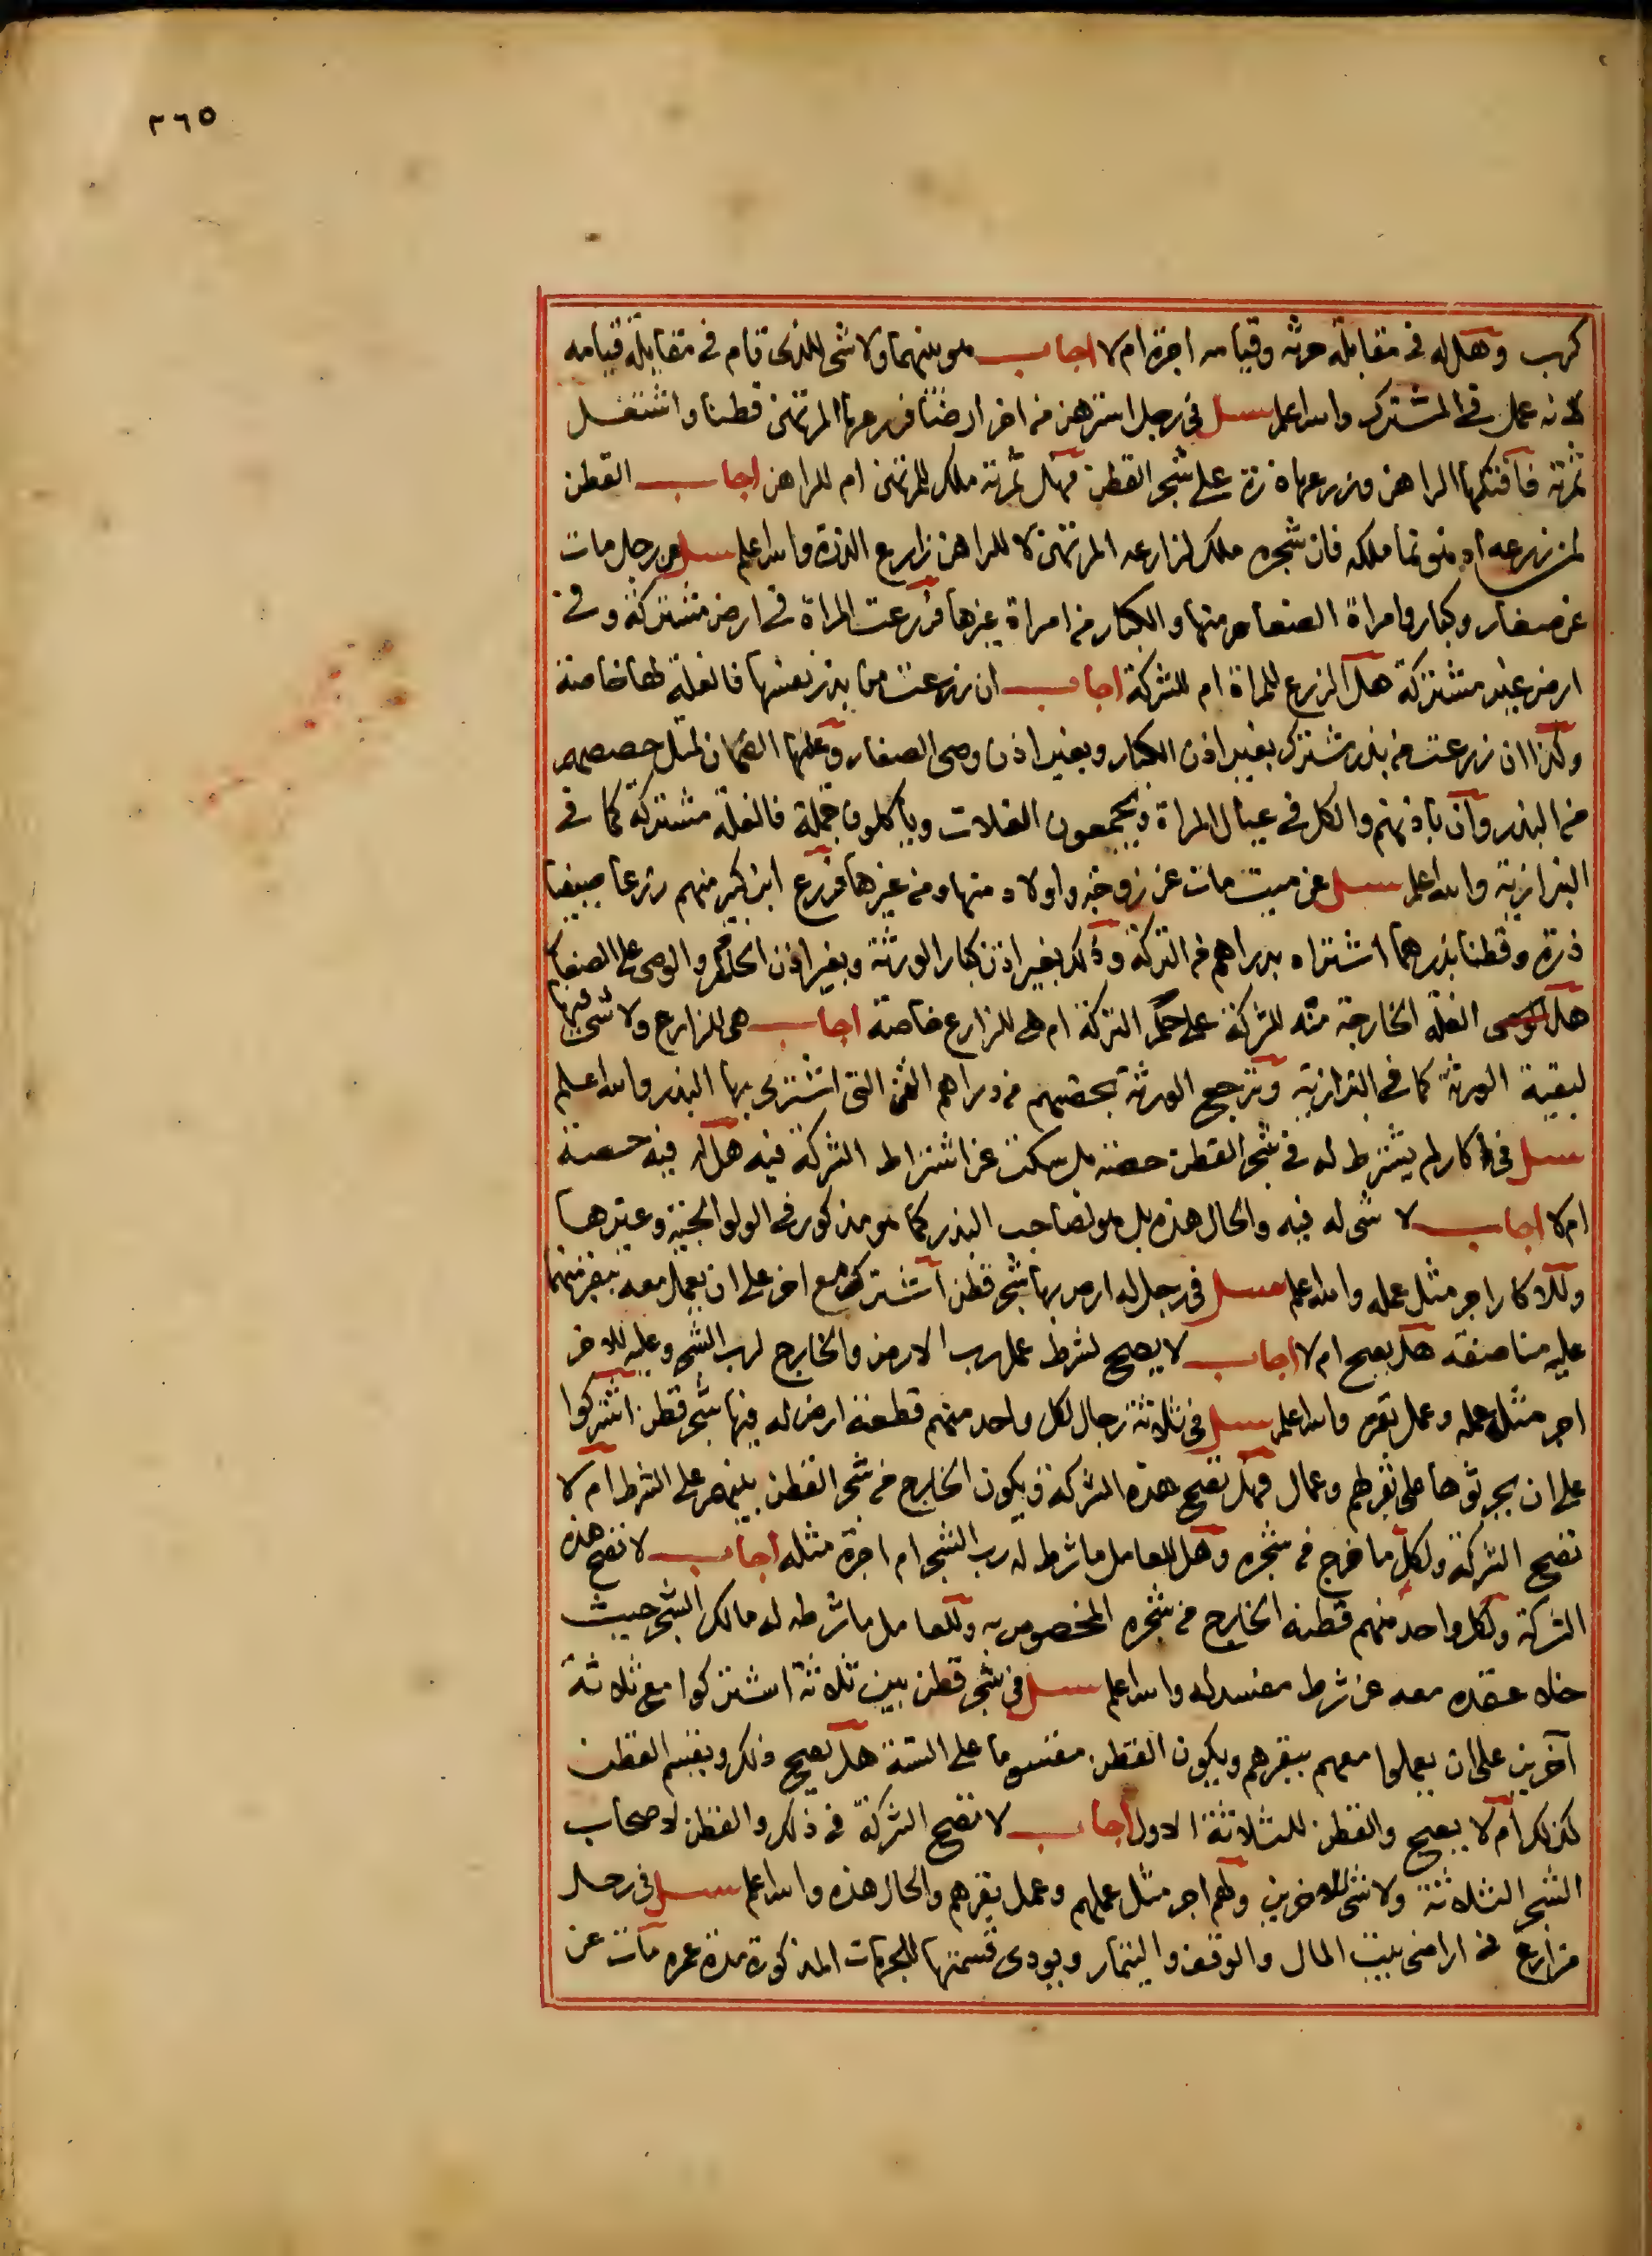 ٢٦٥
كرب وهل له في مقابلة حرثه وقيامه اجرة ام لا اجاب هو بينهما ولا شي للذي قام في مقابلة قيامه
لانه عمل في المشترك والله اعلم سئل في رجل استرهن من اخر ارضا فزرعها المرتهن قطنا واشتغل
ثمرته فافتكها الراهن وزرعها ذرة على شجر القطن فهل ثمرته ملك للمرتهن ام للراهن اجاب القطن
لمن زرعه اذ هو نما ملكه فان شجره ملك لزارعه المرتهن لا للراهن زارع الذرة والله اعلم سئل عن رجل مات
عن صغار وكبار وامراة الصغار منها والكبار من امراة غيرها فزرعت المراة في ارض مشتركة وفي
ارض غير مشتركة هل الزرع للمراة ام للشركة اجاب ان زرعت من بذر نفسها فالغلة لها خاصة
وكذا ان زرعت من بذر مشترك بغير اذن الكبار وبغير اذن وصي الصغار وعليها الضمان لمثل حصصهم
من البذر وان باذنهم والكل في عيال المراة ويجمعون الغلات وياكلون جملة فالغلة مشتركة كما في
البزازية والله اعلم سئل عن ميت مات عن زوجة واولاد منها ومن غيرها فزرع ابن كبير منهم زرعا صيفيا
ذرة وقطنا بذرهما اشتراه بدراهم من التركة وذلك بغير اذن كبار الورثة وبغير اذن الحاكم والوصي على الصغار
هل الغلة الخارجة منه للشركة على حكم التركة ام هي للزارع خاصة اجاب هي للزارع ولا شي فيها
لبقية الورثة كما في البزازية وترجع الورثة بحقهم من دراهم الثمن التي اشترى بها البذر والله اعلم
سئل في اكار لم يشترط له في شجر القطن حصة بل سكت عن اشتراط الشركة فيه هل له فيه حصة
ام لا اجاب لا شي له فيه والحال هذه بل هو لصاحب البذر كما هو مذكور في الولوالجية وغيرها
وللاكار اجر مثل عمله والله اعلم سئل في رجل له ارض بها شجر قطن اشترك مع اخر على ان يعمل معه ببقرتهما
عليه مناصفة هل يصح ام لا اجاب لا يصح لشرط عمل رب الارض والخارج لرب الشجر وعليه للاخر
اجر مثل عمله وعمل بقره والله اعلم سئل في ثلاثة رجال لكل واحد منهم قطعة ارض له فيها شجر قطن اشتركوا
على ان يحرثوها على بقرهم وعمال فهل تصح هذه الشركة ويكون الخارج من شجر القطن بينهم على الشرط ام لا
تصح الشركة ولكل ما خرج من شجره وهل للعامل ما شرطه له رب الشجر ام اجرة مثله اجاب لا تصح هذه
الشركة ولكل واحد منهم قطنه الخارج من شجره المخصوص به وللعامل ما شرطه له مالك الشجر حيث
خلا عقده معه عن شرط مفسد له والله اعلم سئل في شجر قطن بين ثلاثة اشتركوا مع ثلاثة
آخرين على ان يعملوا معهم ببقرهم ويكون القطن مقسوما على الستة هل يصح ذلك ويقسم القطن
كذلك ام لا يصح والقطن للثلاثة الاول اجاب لا تصح الشركة في ذلك والقطن لاصحاب
الشجر الثلاثة ولا شي للاخرين ولهم اجر مثل عملهم وعمل بقرهم والحال هذه والله اعلم سئل في رجل
مزارع في اراضي بيت المال والوقف والتيمار ويودي قسمتها للجهات المذكورة مدة عمره مات عن